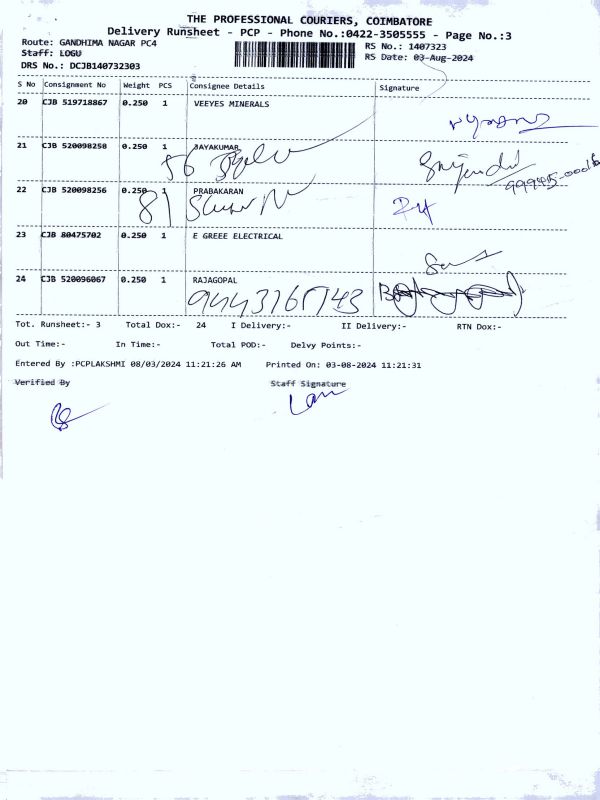 THE PROFESSIONAL COURIERS, COIMBATORE
Delivery Runsheet - PCP - Phone No.:0422-3505555 - Page No.:3
Route: GANDHIMA NAGAR PC4 RS No.: 1407323
Staff: LOGU RS Date: 03-Aug-2024
DRS No.: DCJB140732303
S No Consignment No Weight PCS Consignee Details Signature
20 CJB 519718867 0.250 1 VEEYES MINERALS
21 CJB 520098258 0.250 1 JAYAKUMAR
56
22 CJB 520098256 0.250 1 PRABAKARAN
81
23 CJB 80475702 0.250 1 E GREEE ELECTRICAL
24 CJB 520096067 0.250 1 RAJAGOPAL
Tot. Runsheet:- 3 Total Dox:- 24 I Delivery:- II Delivery:- RTN Dox:-
Out Time:- In Time:- Total POD:- Delvy Points:-
Entered By :PCPLAKSHMI 08/03/2024 11:21:26 AM Printed On: 03-08-2024 11:21:31
Verified By Staff Signature